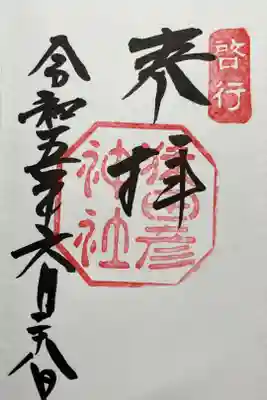 啓行
奉拝
猿田彦
神社
令和五年六月二八日